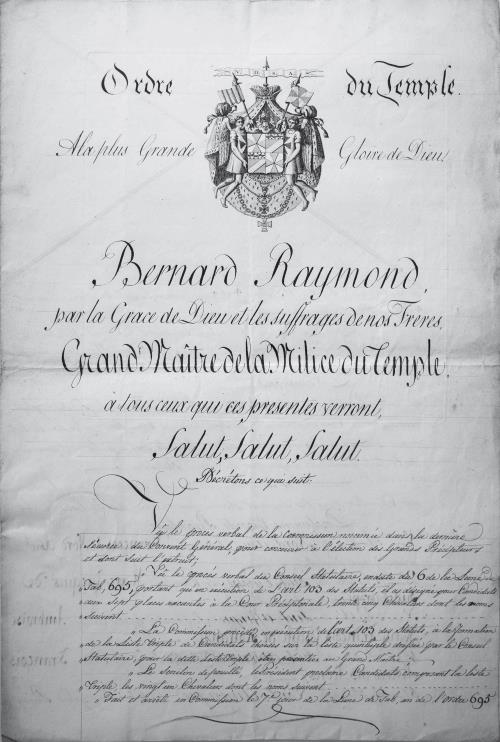 Ordre du Temple.
A la plus Grande Gloire de Dieu,
Bernard Raymond,
par la Grace de Dieu et les suffrages de nos Freres,
Grand Maître de la Milice du Temple,
à tous ceux qui ces presentes verront,
Salut, Salut, Salut.
Décrétons ce qui suit:
Vu le procès verbal de la Commission nommée dans la dernière
Séance du Couvent Général, pour concourir à l'élection des Grands Précepteurs
et dont suit l'extrait;
" Vu le procès verbal du Conseil Statutaire, en date du 6 de la Lune de
" Tab, 695, portant qu'en exécution de l'art. 103 des Statuts, et as désigné pour Candidats
" aux Sept places vacantes à la Cour Préceptoriale, Chevaliers dont les noms
" suivent
" La Commission procède, en exécution de l'art. 103 des Statuts, à la formation
" de la Liste Triple de Candidats choisis sur la liste quintuple dressée par le Conseil
" Statutaire, pour la dite Liste triple être présentée au Grand Maître
" Le Scrutin dépouillé, le Président proclame Candidats composant la liste
" Triple les vingt un Chevaliers dont les noms suivent
" Fait et arrêté en Commission le 7.e jour de la Lune de Tab, an de l'ordre 695